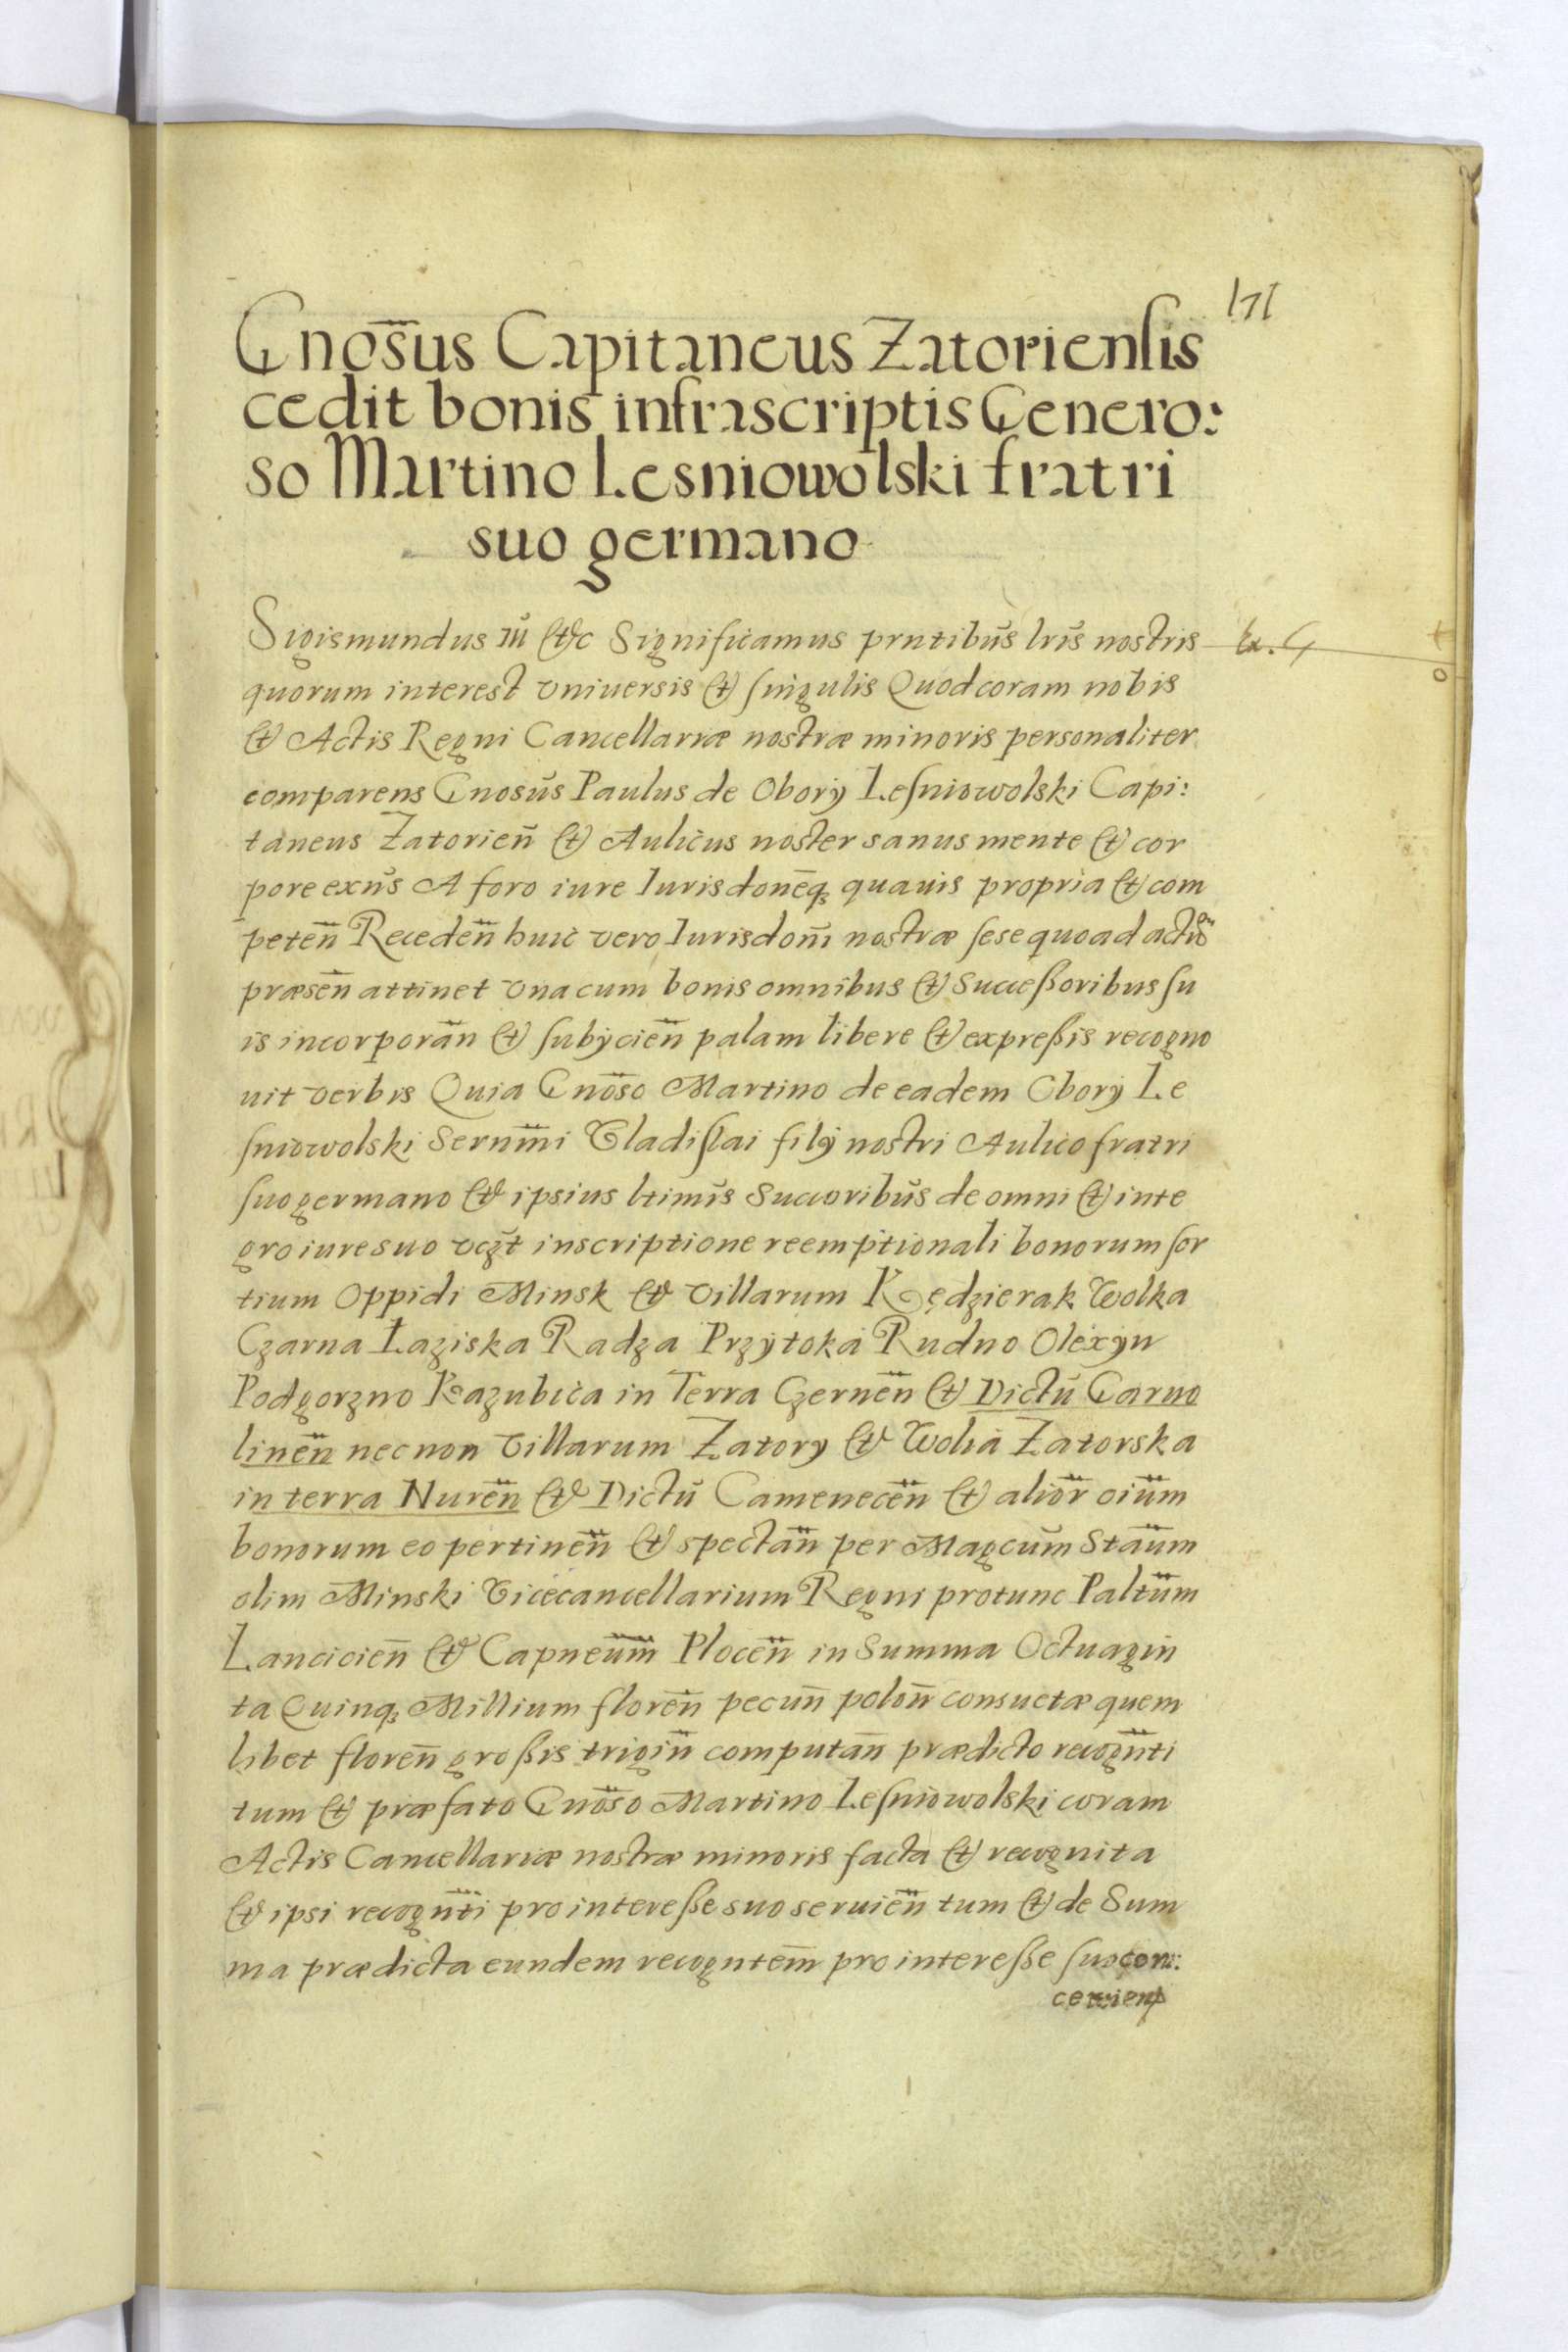 171
Gnos̄us Capitaneus Zatoriensis
cedit bonis infrascriptis Genero:
so Martino Lesniowolski fratri
suo germano
Sigismundus III &c Significamus prntibus̄ lris̄ nostris
quorum interest vniuersis & singulis Quod coram nobis
& Actis Regni Cancellariæ nostræ minoris personaliter
comparens Gnosus̄ Paulus de Obory Lesniowolski Capi:
taneus Zatorien̄ & Aulicus noster sanus mente & cor
pore exn̄s A foro iure Iurisdonēq3 quauis propria & com
peten̄ Receden̄ huic vero Iurisdonī nostræ sese quoad actū
præsen̄ attinet vna cum bonis omnibus & Successoribus su
is incorporan̄ & subijcien̄ palam libere & expressis recogno
uit verbis Quia Gnos̄o Martino de eadem Obory Le
sniowolski Sernm̄i Vladislai filij nostri Aulico fratri
suo germano & ipsius ltimis̄ Succoribus̄ de omni & inte
gro iure suo vcz̄t inscriptione reemptionali bonorum sor
tium Oppidi Minsk & villarum Kędzierak Wolka
Czarna Łaziska Radza Przytoka Rudno Olexyn
Podgorzno Kazubica in Terra Czernen̄ & Dictū Garuo
linen̄ necnon villarum Zatory & Wolia Zatorska
in terra Nuren̄ & Dictū Camenecen̄ & alior̄ oiūm
bonorum eo pertinen̄ & spectan̄ per Magcūm Staūm
olim Minski Vicecancellarium Regni protunc Paltūm
Lancicien̄ & Capneūm Plocen̄ in Summa Octuagin
ta Quinq3 Millium floren̄ pecun̄ polon̄ consuetæ quem
libet floren̄ grossis trigin̄ computan̄ prædicto recogn̄ti
tum & præfato Gnos̄o Martino Lesniowolski coram
Actis Cancellariæ nostræ minoris facta & recognita
& ipsi recogn̄ti pro interesse suo seruien̄ tum & de Sum
ma prædicta eundem recogntem̄ pro interesse suo con: